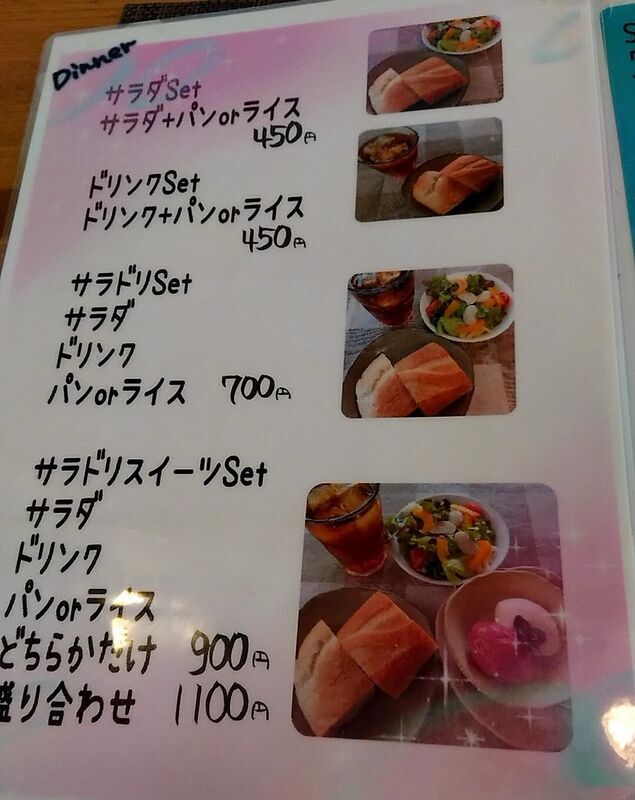 Dinner
サラダSet
サラダ+パンorライス
450円
ドリンクSet
ドリンク+パンorライス
450円
サラドリSet
サラダ
ドリンク
パンorライス 700円
サラドリスイーツSet
サラダ
ドリンク
パンorライス
どちらかだけ 900円
盛り合わせ 1100円